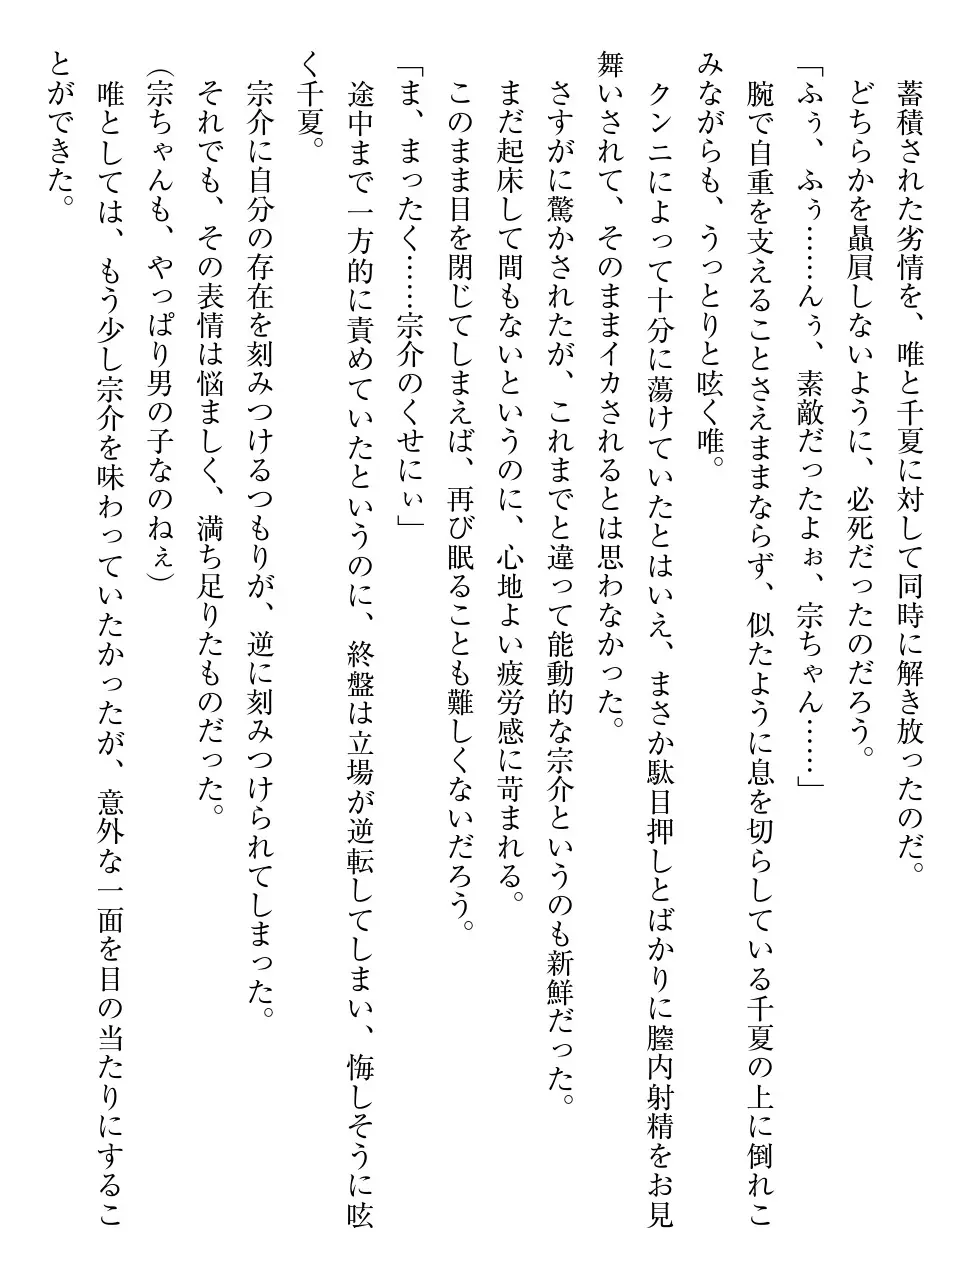 蓄積された劣情を、唯と千夏に対して同時に解き放ったのだ。
どちらかを贔屓しないように、必死だったのだろう。
「ふぅ、ふぅ……んぅ、素敵だったよぉ、宗ちゃん……」
腕で自重を支えることさえままならず、似たように息を切らしている千夏の上に倒れこ
みながらも、うっとりと呟く唯。
クンニによって十分に蕩けていたとはいえ、まさか駄目押しとばかりに膣内射精をお見
舞いされて、そのままイカされるとは思わなかった。
さすがに驚かされたが、これまでと違って能動的な宗介というのも新鮮だった。
まだ起床して間もないというのに、心地よい疲労感に苛まれる。
このまま目を閉じてしまえば、再び眠ることも難しくないだろう。
「ま、まったく……宗介のくせにぃ」
途中まで一方的に責めていたというのに、終盤は立場が逆転してしまい、悔しそうに呟
く千夏。
宗介に自分の存在を刻みつけるつもりが、逆に刻みつけられてしまった。
それでも、その表情は悩ましく、満ち足りたものだった。
（宗ちゃんも、やっぱり男の子なのねぇ）
唯としては、もう少し宗介を味わっていたかったが、意外な一面を目の当たりにするこ
とができた。